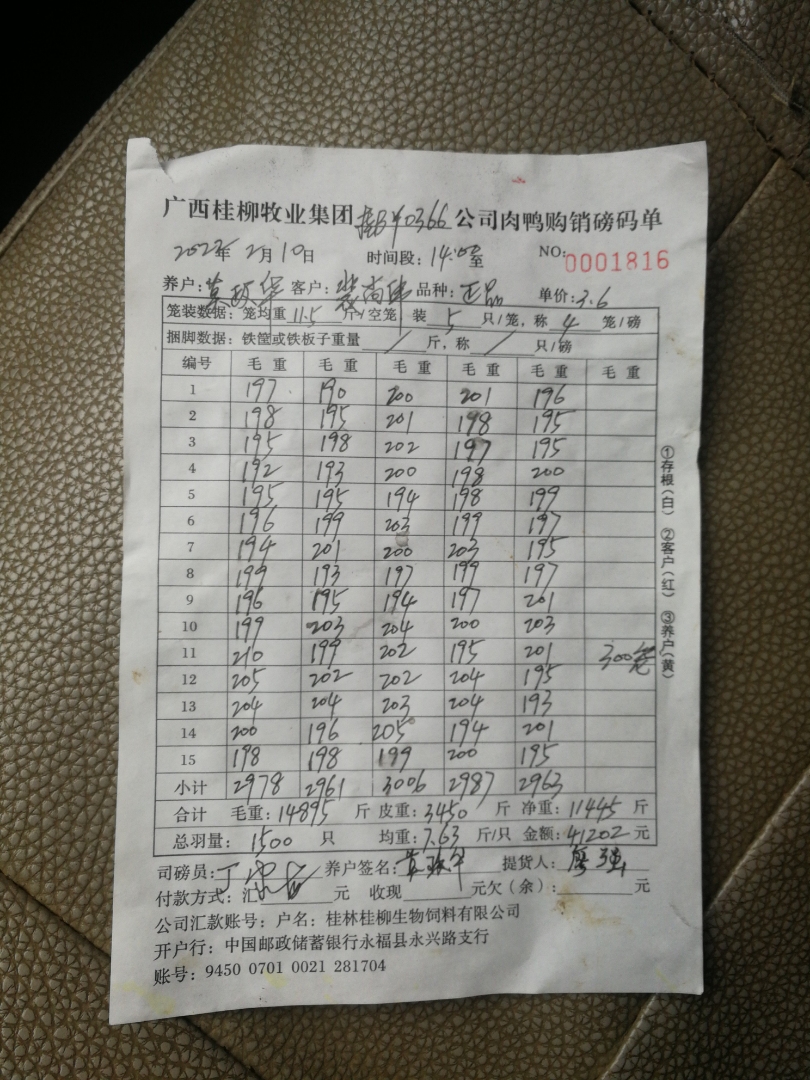 广西桂柳牧业集团桂B40366公司肉鸭购销磅码单
2023年2月10日 时间段:14:00至 NO:0001816
养户: 客户:裴尚伟 品种:正品 单价:3.6
笼装数据:笼均重11.5斤/空笼,装5只/笼,称4笼/磅
捆脚数据:铁筐或铁板子重量/斤,称/只/磅
编号 毛重 毛重 毛重 毛重 毛重 毛重
1 197 190 200 201 196
2 198 195 201 198 195
3 195 198 202 197 195
4 192 193 200 198 200
5 195 195 194 198 199
6 196 199 203 199 197
7 194 201 200 203 195
8 199 193 197 199 197
9 196 195 194 197 201
10 199 203 204 200 203
11 210 199 202 195 201 300笼
12 205 202 202 204 195
13 204 204 203 204 193
14 200 196 205 194 201
15 198 198 199 200 195
小计 2978 2961 3006 2987 2963
合计 毛重:14895斤 皮重:3450斤 净重:11445斤
总羽量:1500只 均重:7.63斤/只 金额:41202元
司磅员: 养户签名: 提货人:廖强
付款方式:汇 元 收现 元欠(余): 元
公司汇款账号:户名:桂林桂柳生物饲料有限公司
开户行:中国邮政储蓄银行永福县永兴路支行
账号:9450 0701 0021 281704
①存根(白) ②客户(红) ③养户(黄)